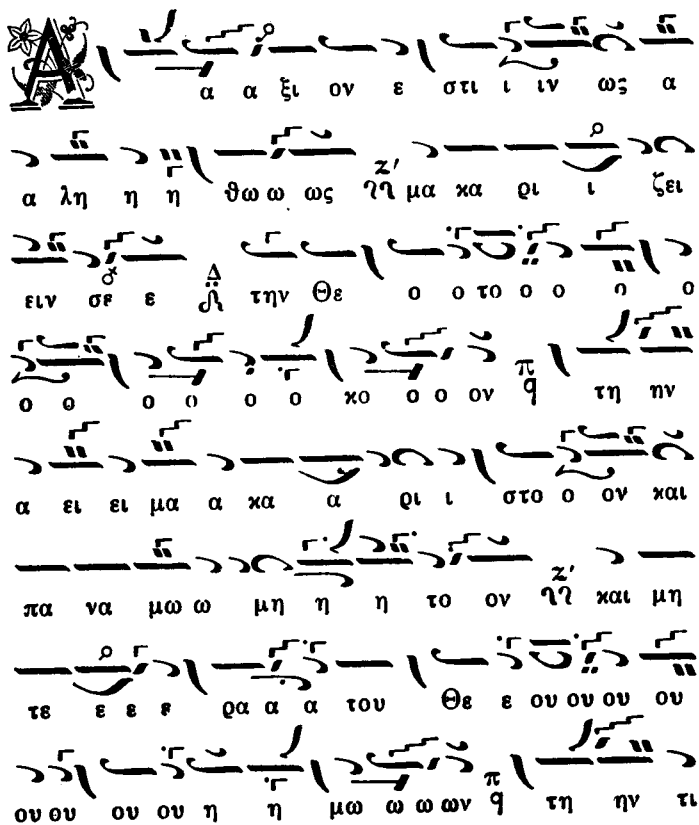 Α α α ξι ον ε στι ι ιν ως α
α λη η η θω ω ως ζ' μα κα ρι ι ζει
ειν σε ε Δ την Θε ο ο το ο ο ο ο
ο ο ο ο ο ο κο ο ο ον π q τη ην
α ει ει μα α κα α ρι ι στο ο ον και
πα να μω ω μη η η το ον ζ' και μη
τε ε ε ε ρα α α του Θε ε ου ου ου ου
ου ου ου ου η η μω ω ω ων π q τη ην τι